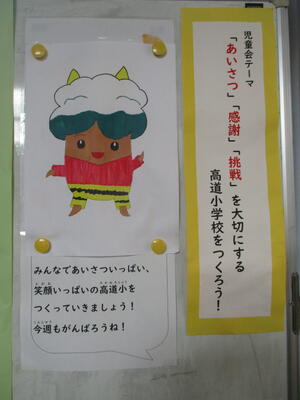 児童会テーマ
「あいさつ」「感謝」「挑戦」を大切にする
高道小学校をつくろう！
みんなであいさついっぱい、
笑顔いっぱいの高道小を
つくっていきましょう！
今週もがんばろうね！